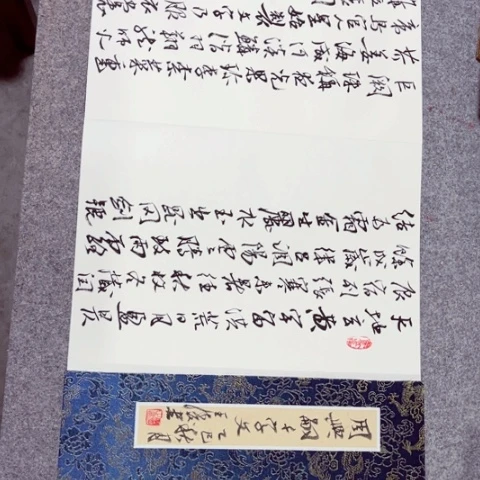 周興嗣千字文
乙巳秋月
天地玄黃宇宙洪荒日月盈昃
辰宿列張寒來暑往秋收冬藏閏
餘成歲律呂調陽雲騰致雨露
結為霜金生麗水玉出崑岡劍號
巨闕珠稱夜光果珍李柰菜重
芥薑海鹹河淡鱗潛羽翔龍師火
帝鳥官人皇始制文字乃服